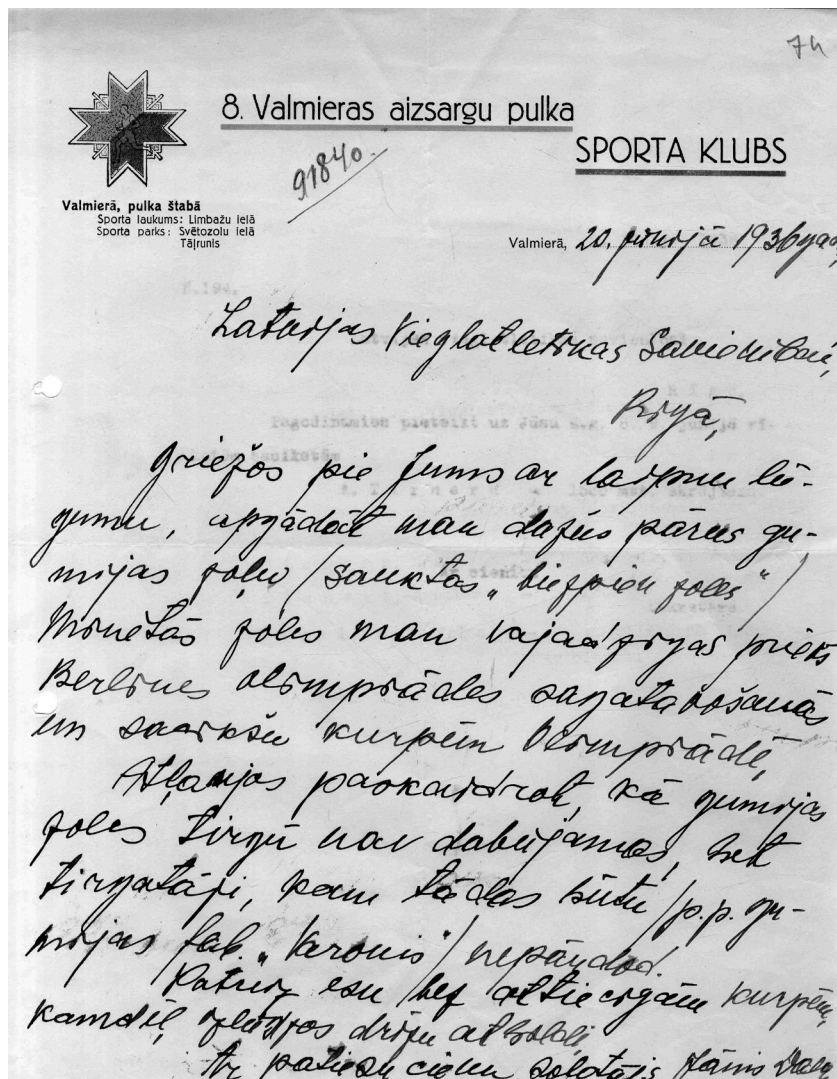 74
8. Valmieras aizsargu pulka
SPORTA KLUBS
91840.
Valmierā, pulka štabā
Sporta laukums: Limbažu ielā
Sporta parks: Svētozolu ielā
Tāļrunis
Valmierā, 20. jūnijā 1936 gad,
Latvijas Vieglatletikas Savienībai,
Rīgā,
Griežos pie Jums ar laipnu lū-
gumu, apgādāt man dažus pārus gu-
mijas zoļu / sauktas „biezpien zoles“ /
Minētās zoles man vajadzīgas priekš
Berlines olimpiādes sagatavošanās
un sacīkšu kurpēm Olimpiādē,
Atļaujos paskaidrot, kā gumijas
zoles tirgū nav dabūjamas, bet
tirgotāji, kam tādas būtu / p.p. gu-
mijas fab. „Varonis“ / nepārdod.
Patreiz esu bez attiecīgām kurpēm,
kamdēļ drīzu atbildi
Ar patiesu cieņu soļotājs Jānis